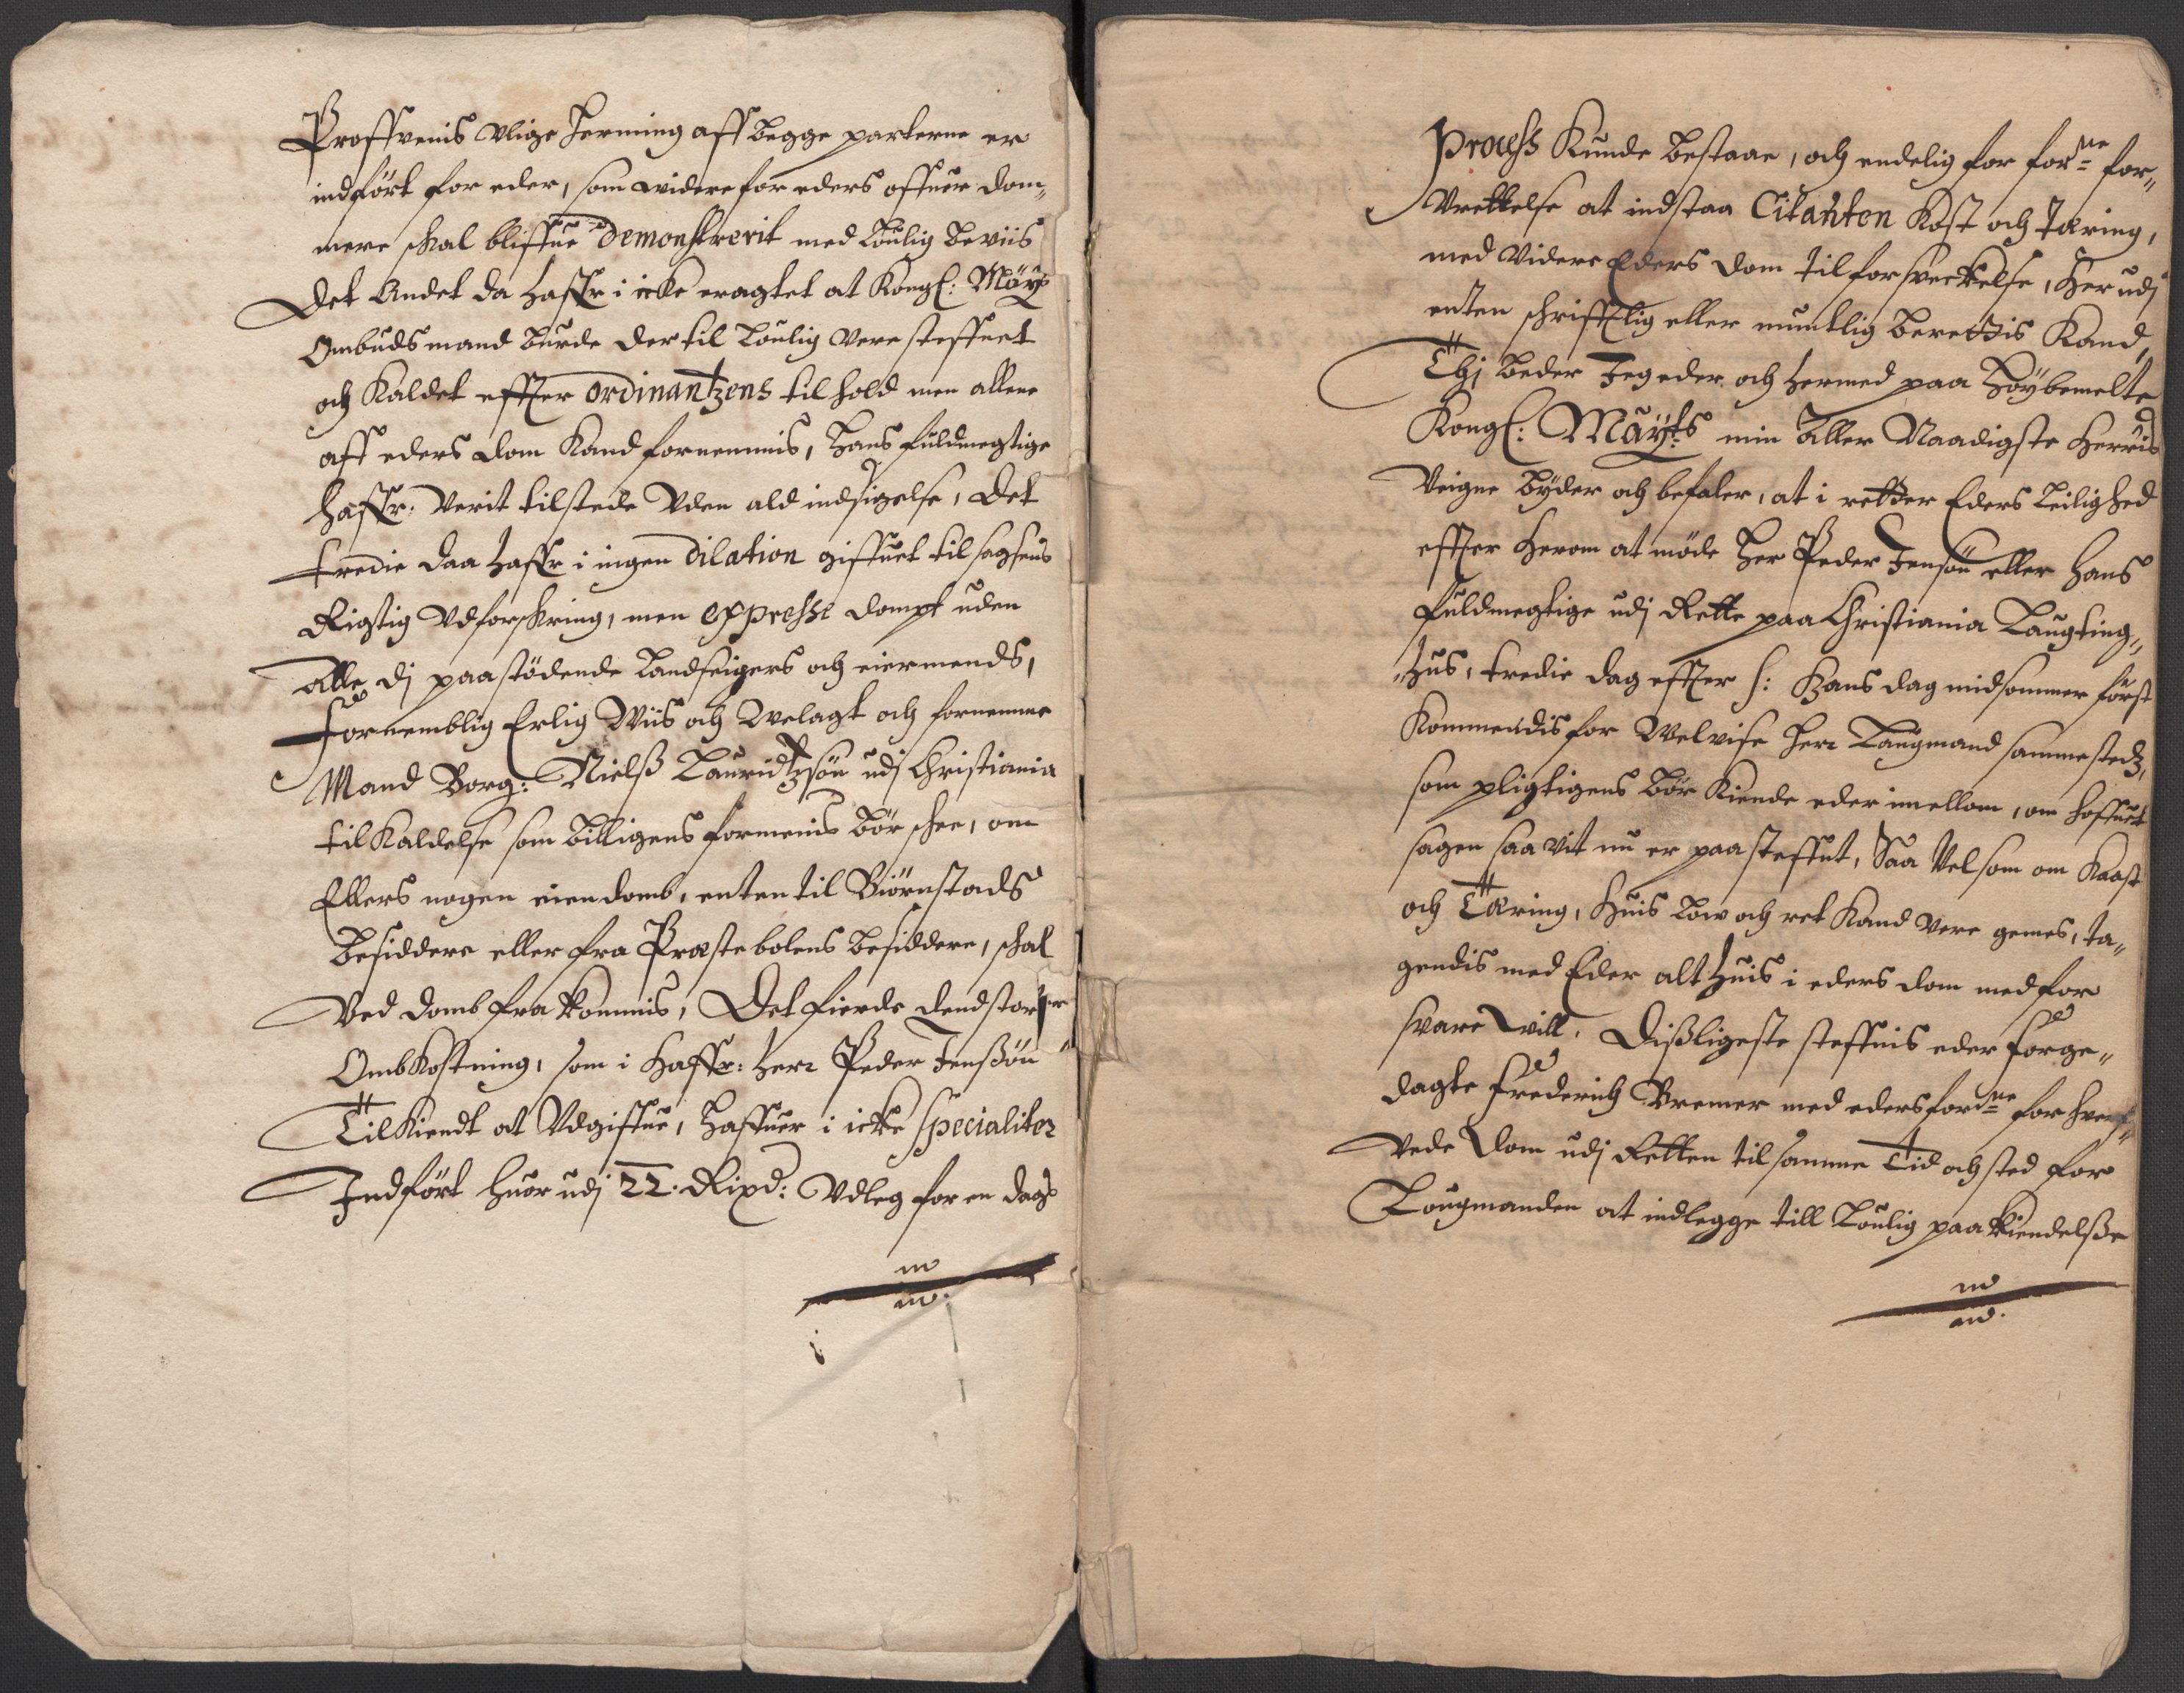 Proffvenis Vlige Herming aff begge parterne er
indført for eder, som widere for eders offuer dom„
mere schal bliffue Demonstrerit med loulig beviis
Det Andet da haffr i icke eragtet at Kongl: Mäys
Ombudsmand burde der til loulig vere steffnet
och Kaldet effter ordinantzens tilhold men allene
aff eders dom Kand fornemmis, hans fuldmegtige
haffr: Verit tilstede Vden ald indsigelse, Det
tredie daa haffr i ingen dilation giffuet til sagsens
Rigtig Vdforskring, men expresse dompt uden
Alle dj paastødende landseigers och eiermends,
fornemblig Erlig Wiis och Welagt och fornemme
Mand Borg: Nielß Lauridtzsøn udj Christiania
til Kaldelse som billigens formenis bør schee, om
Ellers nogen eiendomb, enten til Biørnstads
besiddere eller fra Præstebolens besiddere, schal
Ved domb fra kommis, Det fierde dend stor
OmbKostning, som i Haffr: Herr Peder Jensßøn
TilKiendt at Vdgiffue, haffuer i icke specialiter
Indført huor udj 22. Rixd: Vdleg for en dags
m
m.
Process Kunde bestaae, och endelig for forne for„
Vrettelse at indstaa Citanten Kost och Tæring,
med videre Eders dom til forsveckelse, Her udj
enten schrifftlig eller muntlig berettis Kand,
Thj beder Jeg eder och hermed paa Høybemelte
Kongl: Mäyts min Aller Naadigste Herris
Veigne byder och befaler, at i retter Eders leilighed
effter Herom at møde Her Peder Jensøn eller Hans
fuldmegtige udj Rette paa Christiania Laugting„
„hus, tredie dag effter S: Hans dag midsommer først
Kommendis for Welvise Herr Laugmand sammesteds,
som pligtigens bør Kiende eder imellom, om hoffuet
sagen saavit nu er paasteffnt, Saa Vel som om Kaast
och Tæring, Huis low och ret Kand vere gemes, ta„
gendis med Eder alt huis i eders dom med for
svare will. Dißligeste steffnis eder forge„
dagte Frederich Bremer med eders forne for hverf„
Vede Dom udj Retten til samme Tid och sted for
Lougmanden at indlegge till loulig paakiendelsße
m
m.